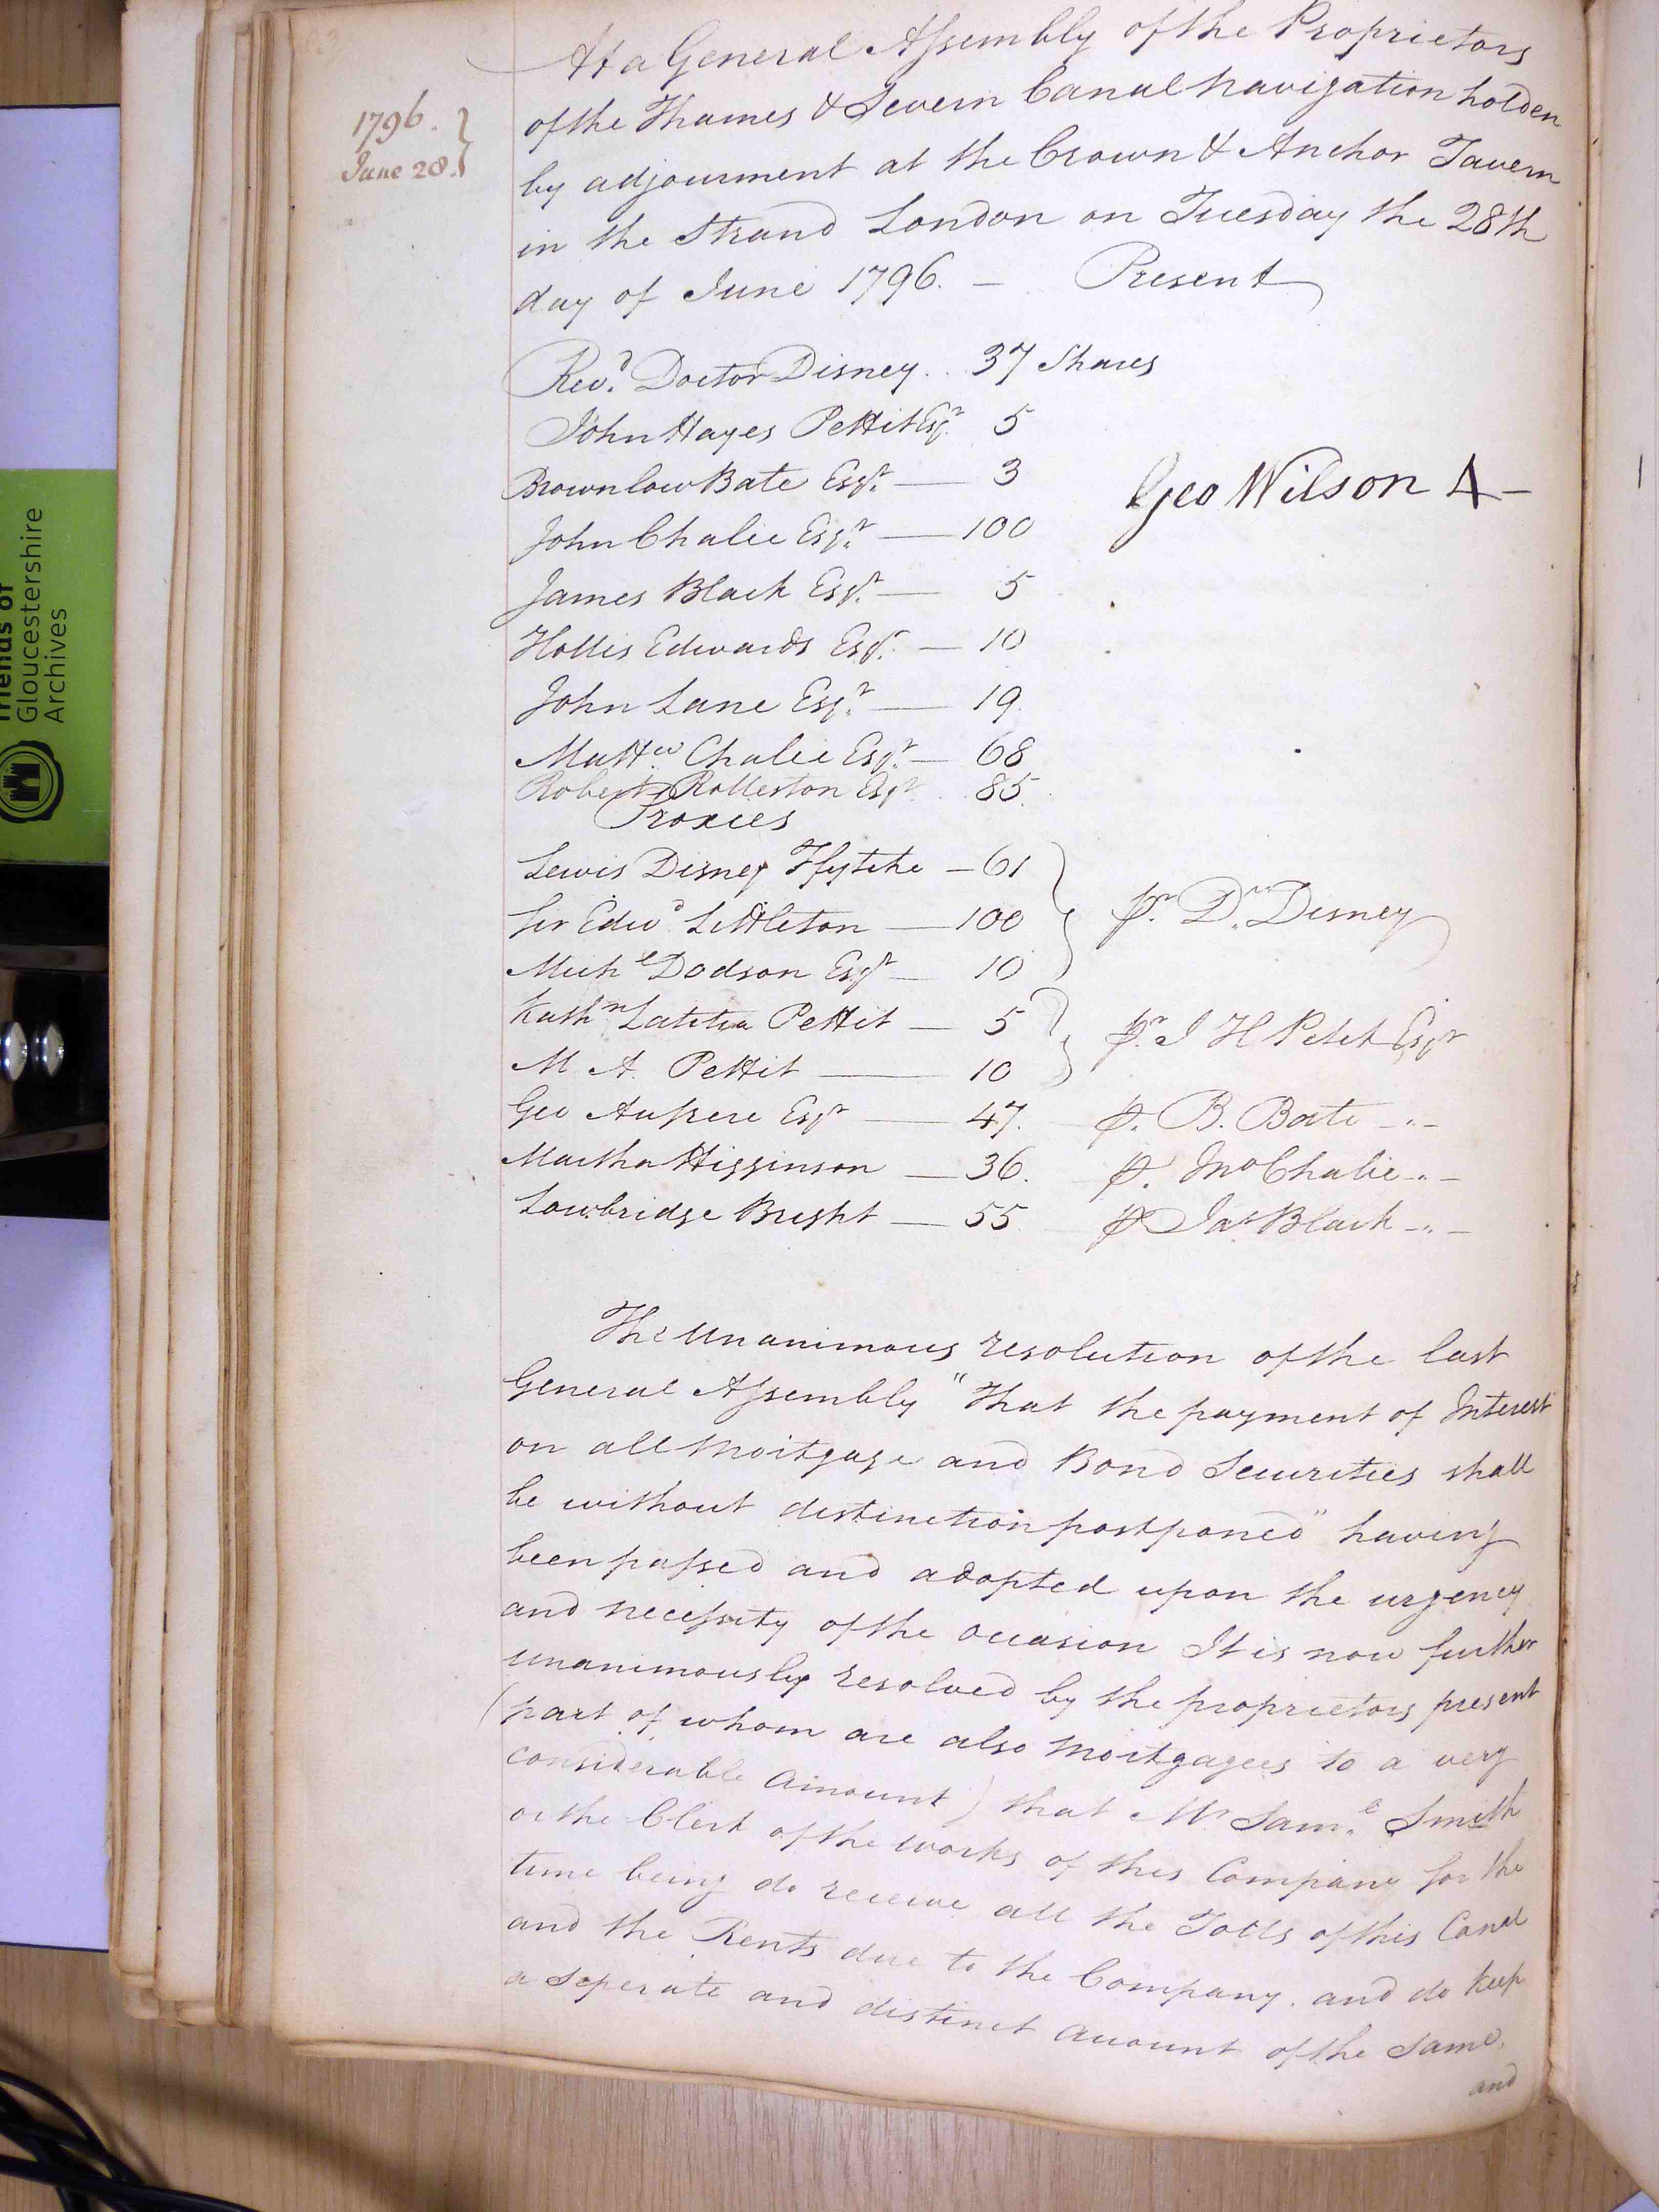 83
At a General Assembly of the Proprietors
1796.
June 28.
of the Thames & Severn Canal Navigation holden
by adjourment at the Crown & Anchor Tavern
in the Strand London on Tuesday the 28th
day of June 1796. — Present
Revd. Doctor Disney .. 37 Shares
John Hayes Pettit Esqr. 5
Brownlow Bate Esqr. — 3
Geo Wilson 4 —
John Chalie Esqr. — 100
James Black Esqr. — 5
Hollis Edwards Esqr. — 10
John Lane Esqr. — 19
Mattw. Chalie Esqr. — 68
Robert Rolleston Esqr. 85
Proxies
Lewis Disney Ffytche — 61
Sir Edwd Littleton — 100 pr. Dr. Disney
Michl Dodson Esqr — 10
Kathn Latitia Pettit — 5 pr. J H Petit Esqr
M. A. Pettit — 10
Geo Aufrere Esqr — 47. p. B. Bate -"-
Martha Higginson — 36. p. Jno Chalie -"-
Lowbridge Bright — 55 p Jas Black -"-
The Unanimous resolution of the last
General Assembly "That the payment of Interest
on all Mortgage and Bond Securities shall
be without distinction postponed" having
been passed and adopted upon the urgency
and necessity of the occasion It is now further
unanimously resolved by the proprietors present
(part of whom are also Mortgagees to a very
considerable Amount) that Mr Saml. Smith
or the Clerk of the works of this Company for the
time being do receive all the Tolls of this Canal
and the Rents due to the Company. and do keep
a seperate and distinct account of the same.
and
Friends of
Gloucestershire
Archives